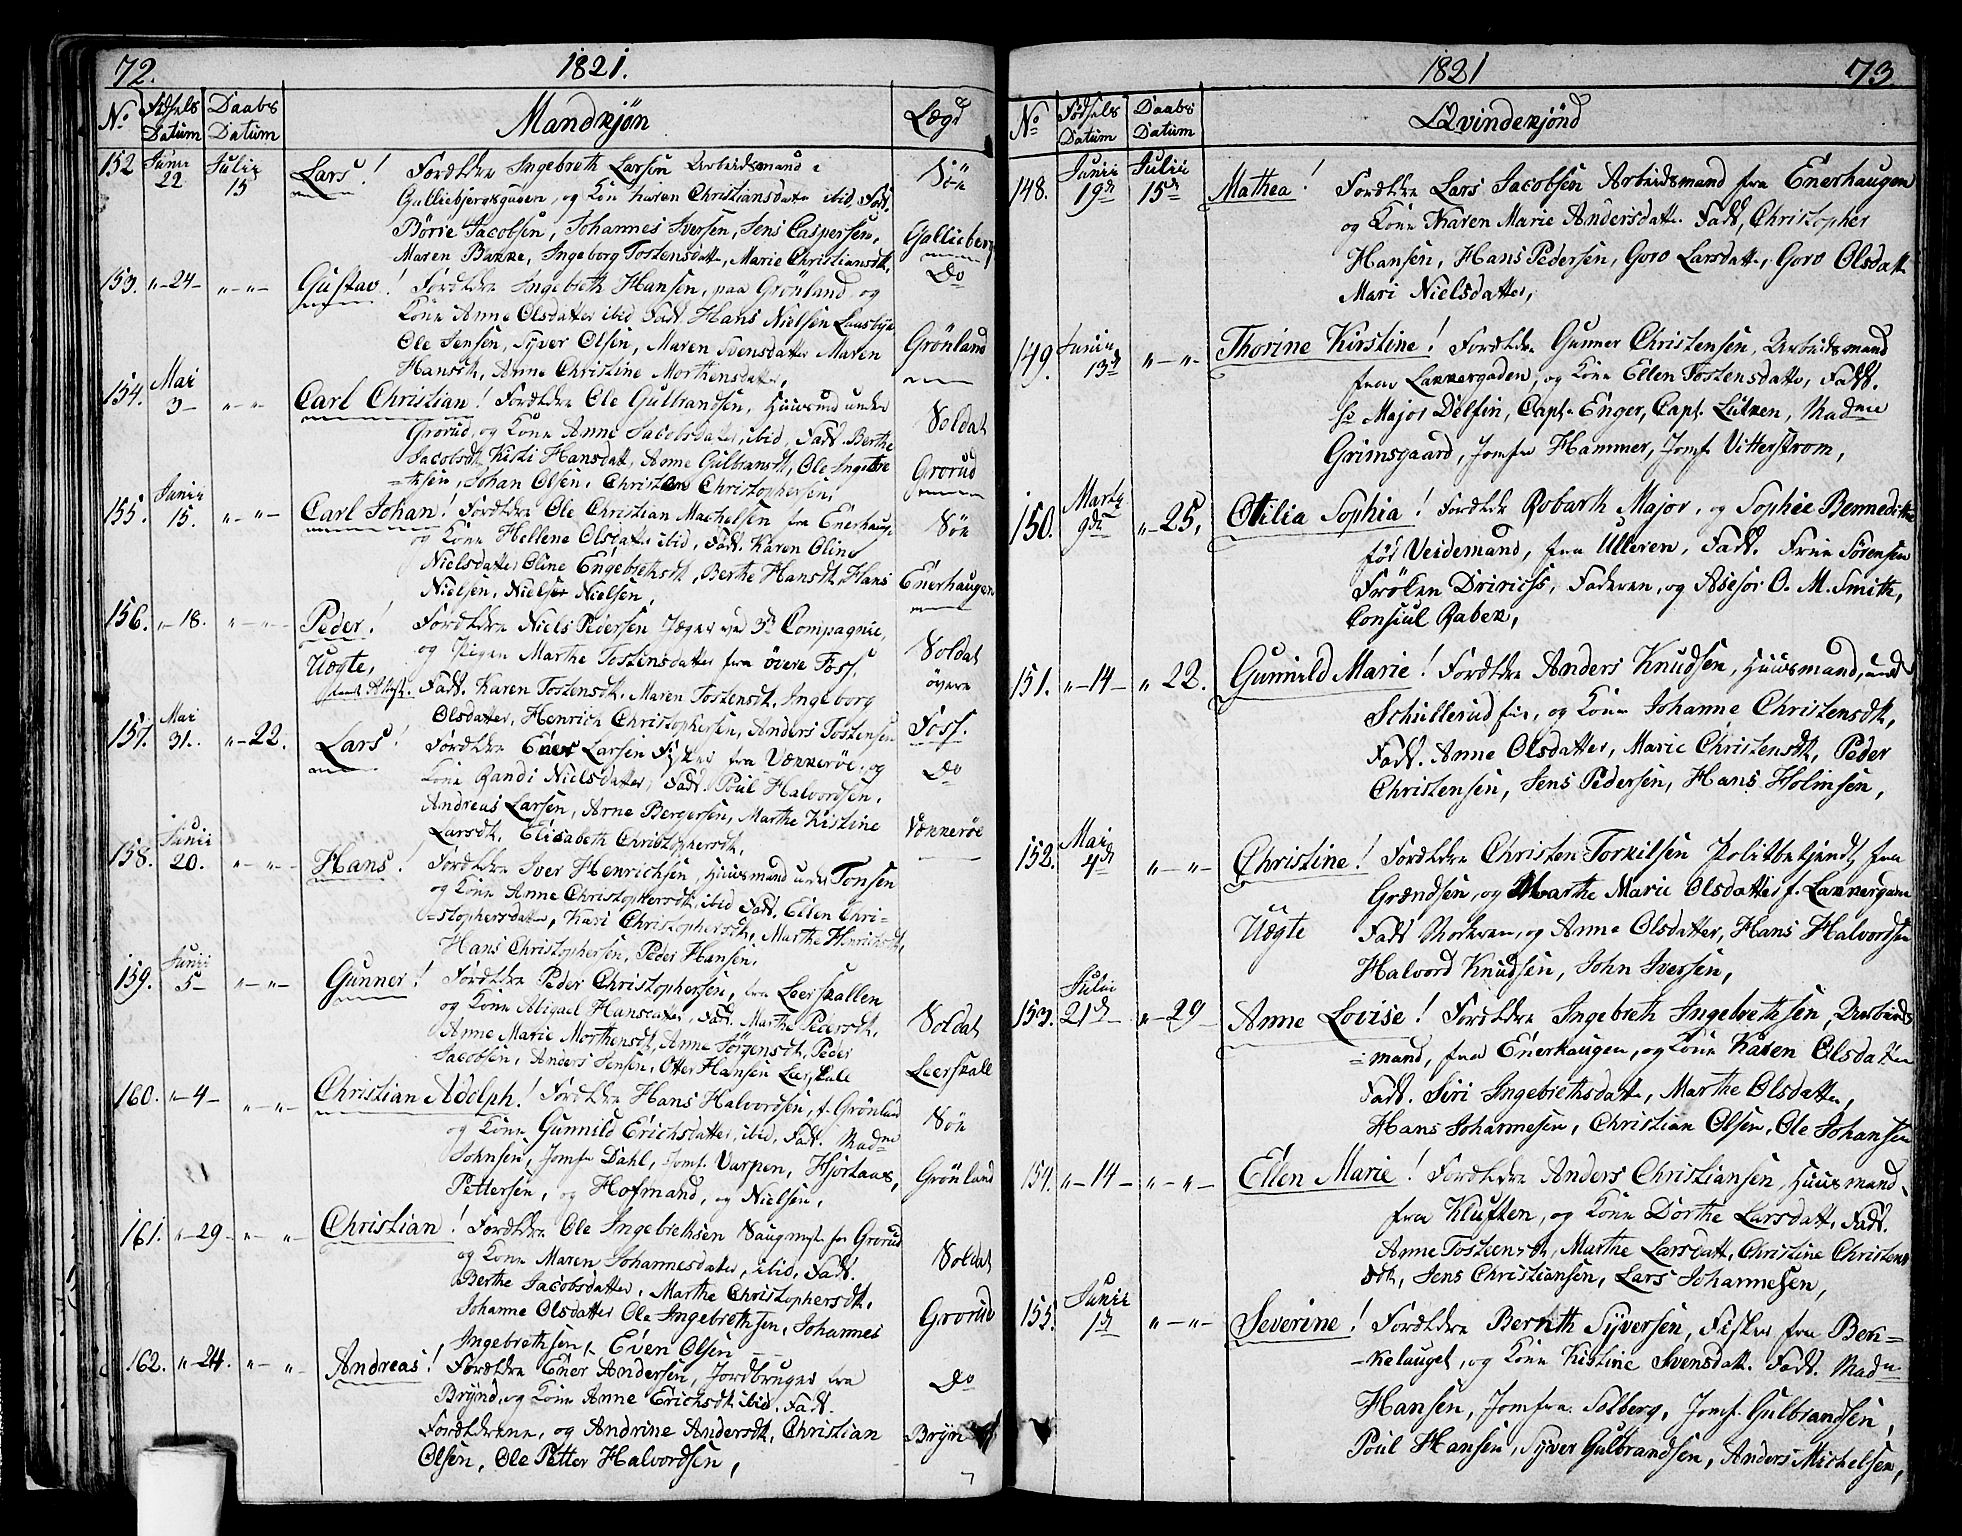 72. 1821.
No Fødsels Datum Daabs Datum Mandkjøn Lægd
152 Junii 22 Julii 15 Lars! Forældre Ingebreth Larsen Arbeidsmand i Søe
Galliebergsgaden, og Kone Karen Christiansdatr ibid, Fadd.
Børre Jacobsen, Johannes Iversen, Jens Caspersen, Gallieberg
Maren Bakke, Ingeborg Tostensdatte, Marie Christiansdt,
153. " 24 - " - " - Gustav! Forældre Ingebreth Hansen, paa Grønland og Do
Kone Anne Olsdatter ibid Fadd. Hans Nielsen
Ole Jensen, Syver Olsen, Maren Svensdatter Maren Grønland
Hansdt, Anne Christine Morthensdatter,
154. Mai 3 - " - " - Carl Christian! Forældre Ole Gulbrandsen, Huusmd under Soldat
Grorud, og Kone Anne Jacobsdatter, ibid, Fadd. Berthe
Jacobsdt, Kisti Hansdatt, Anne Gulbransdt, Ole Ingebre Grorud
=thsen, Johan Olsen, Christen Christophersen,
155. Junii 15. " - " - Carl Johan! Forældre Ole Christian Machelsen fra Enerhauge Søe
og Kone Hellene Olsdatter ibid, Fadd. Karen Oline
Nielsdatter Oline Engebrethsdt, Berthe Hansdt, Hans Enerhaugen
Nielsen, Nielser Nielsen,
156. " - 18. " - " - Peder! Forældre Niels Pedersen Jæger ved 3de Compagnie, Soldat
Uægte, og Pigen Marthe Tostensdatter fra øvere Foss. øvere
Fadd. Karen Tostensdt, Maren Tostensdt, Ingeborg
Olsdatter, Henrich Christophersen, Anders Tostensen Foss.
157. Mai 31. " - 22. Lars! Forældre Ener Larsen Fisker fra Vækkerøe, og Do
Kone Randi Nielsdatter, Fadd. Poul Halvordsen,
Andreas Larsen, Arne Bergersen, Marthe Kistine Vækkerøe
Larsdt, Elisabeth Christophersdt,
158. Junii 20. " - " - Hans! Forældre Iver Henrichsen, Huusmand under Tonsen
og Kone Anne Christophersdt, ibid Fadd. Ellen Chri-
=stophersdatter, Kari Christophersdt, Marthe Henrichsdt,
Hans Christophersen, Peder Hansen,
159. Junii 5 - " - " - Gunner! Forældre Peder Christophersen, fra Leerskallen
og Kone Abigael Hansdatter, Fadd. Marthe Pedersdt, Soldat
Anne Marie Morthensdt, Anne Jørgensdt, Peder
Jacobsen, Anders Jensen, Otter Hansen Leerskale Leerskall
160. " - 4 - " - " - Christian Adolph! Forældre Hans Halvordsen, f. Grønland Søe
og Kone Gunnild Erichsdatter, ibid, Fadd. Madme
Johnsen, Jomfr Dahl, Jomf. Varpen, Hjortaas, Grønland
Pettersen, og Hofmand, og Nielsen,
161. " - 29 - " - " Christian! Forældre Ole Ingebrethsen Saugmst. fra Grorud
og Kone Maren Johannesdatter, ibid, Fadd. Soldat
Berthe Jacobsdatter, Marthe Christophersdt,
Johanne Olsdatter Ole Ingebrethsen, Johannes Grorud
Ingebrethsen, Even Olsen
162. " - 24. " - " Andreas! Forældre Ener Andersen, Jordbruger fra Do
Brynd, og Kone Anne Erichsdt ibid. Fadd.
Forældrene, og Andrine Andersdt, Christian Bryn
Olsen, Ole Petter Halvordsen,
1821 73.
No Fødsels Datum Daabs Datum Qvindekjønd
148. Junii 19de Julii 15de Mathea! Forældre Lars Jacobsen Arbeidsmand fra Enerhaugen
og Kone Karen Marie Andersdatte. Fadd, Christopher
Hansen, Hans Pedersen, Goro Larsdatte, Goro Olsdatt
Mari Nielsdatter,
149. Junii 13de " - " - Thorine Kirstine! Forældre Gunner Christensen, Arbeidsmand
fraa Lakkergaden, og Kone Ellen Tostensdatte, Fadd.
Hr Major Delfin, Capt. Enger, Capt. Lütken, Madme
Grimsgaard, Jomfru Hammer, Jomf. Vitterstrom,
150. Marty 9de " - 25, Otilia Sophia! Forældre Robarth Major, og Sophie Bennedikte
før Veidemand, fra Ulleren, Fadd. Frue Sørensen
Frøken Diricss, Faderen, og Asesor O. M. Smith,
Consul Raben,
151. " - 14 - " 22. Gunnild Marie! Forældre Anders Knudsen, Huusmand, und
Schullerud , og Kone Johanne Christensdt,
Fadd. Anne Olsdatter, Marie Christensdt, Peder
Christensen, Jens Pedersen, Hans Holmsen,
152. Mai 4de " - " - Christine! Forældre Christen Torkilsen Politbetjendt fra
Grændsen, og Marthe Marie Olsdatter f. Lakkergaden
Uægte Fadd Moderen, og Anne Olsdatter, Hans Halvordsen
Halvord Knudsen, John Iversen,
153. Julii 21de " - 29 - Anne Lovise! Forældre Ingebreth Ingebrethsen, Arbeids
=mand, fra Enerhaugen, og Kone Karen Olsdatter
Fadd. Siri Ingebrethsdatte, Marthe Olsdatte,
Hans Johannesen, Christian Olsen, Ole Johansen
154. " - 14 - " - " - Ellen Marie! Forældre Anders Christiansen, Huusmand
fra Kluften, og Kone Dorthe Larsdatt, Fadd.
Anne Tostensdt, Marthe Larsdatt, Christine Christens
dt, Jens Christiansen, Lars Johannesen,
155. Junii 1de " - " - Severine! Forældre Bernth Syversen, Fisker fra Bek=
=kelauget, og Kone Kistine Svensdatt. Fadd. Madme
Hansen, Jomfru Solberg, Jomf. Gulbrandsen,
Poul Hansen, Syver Gulbrandsen, Anders Michelsen,